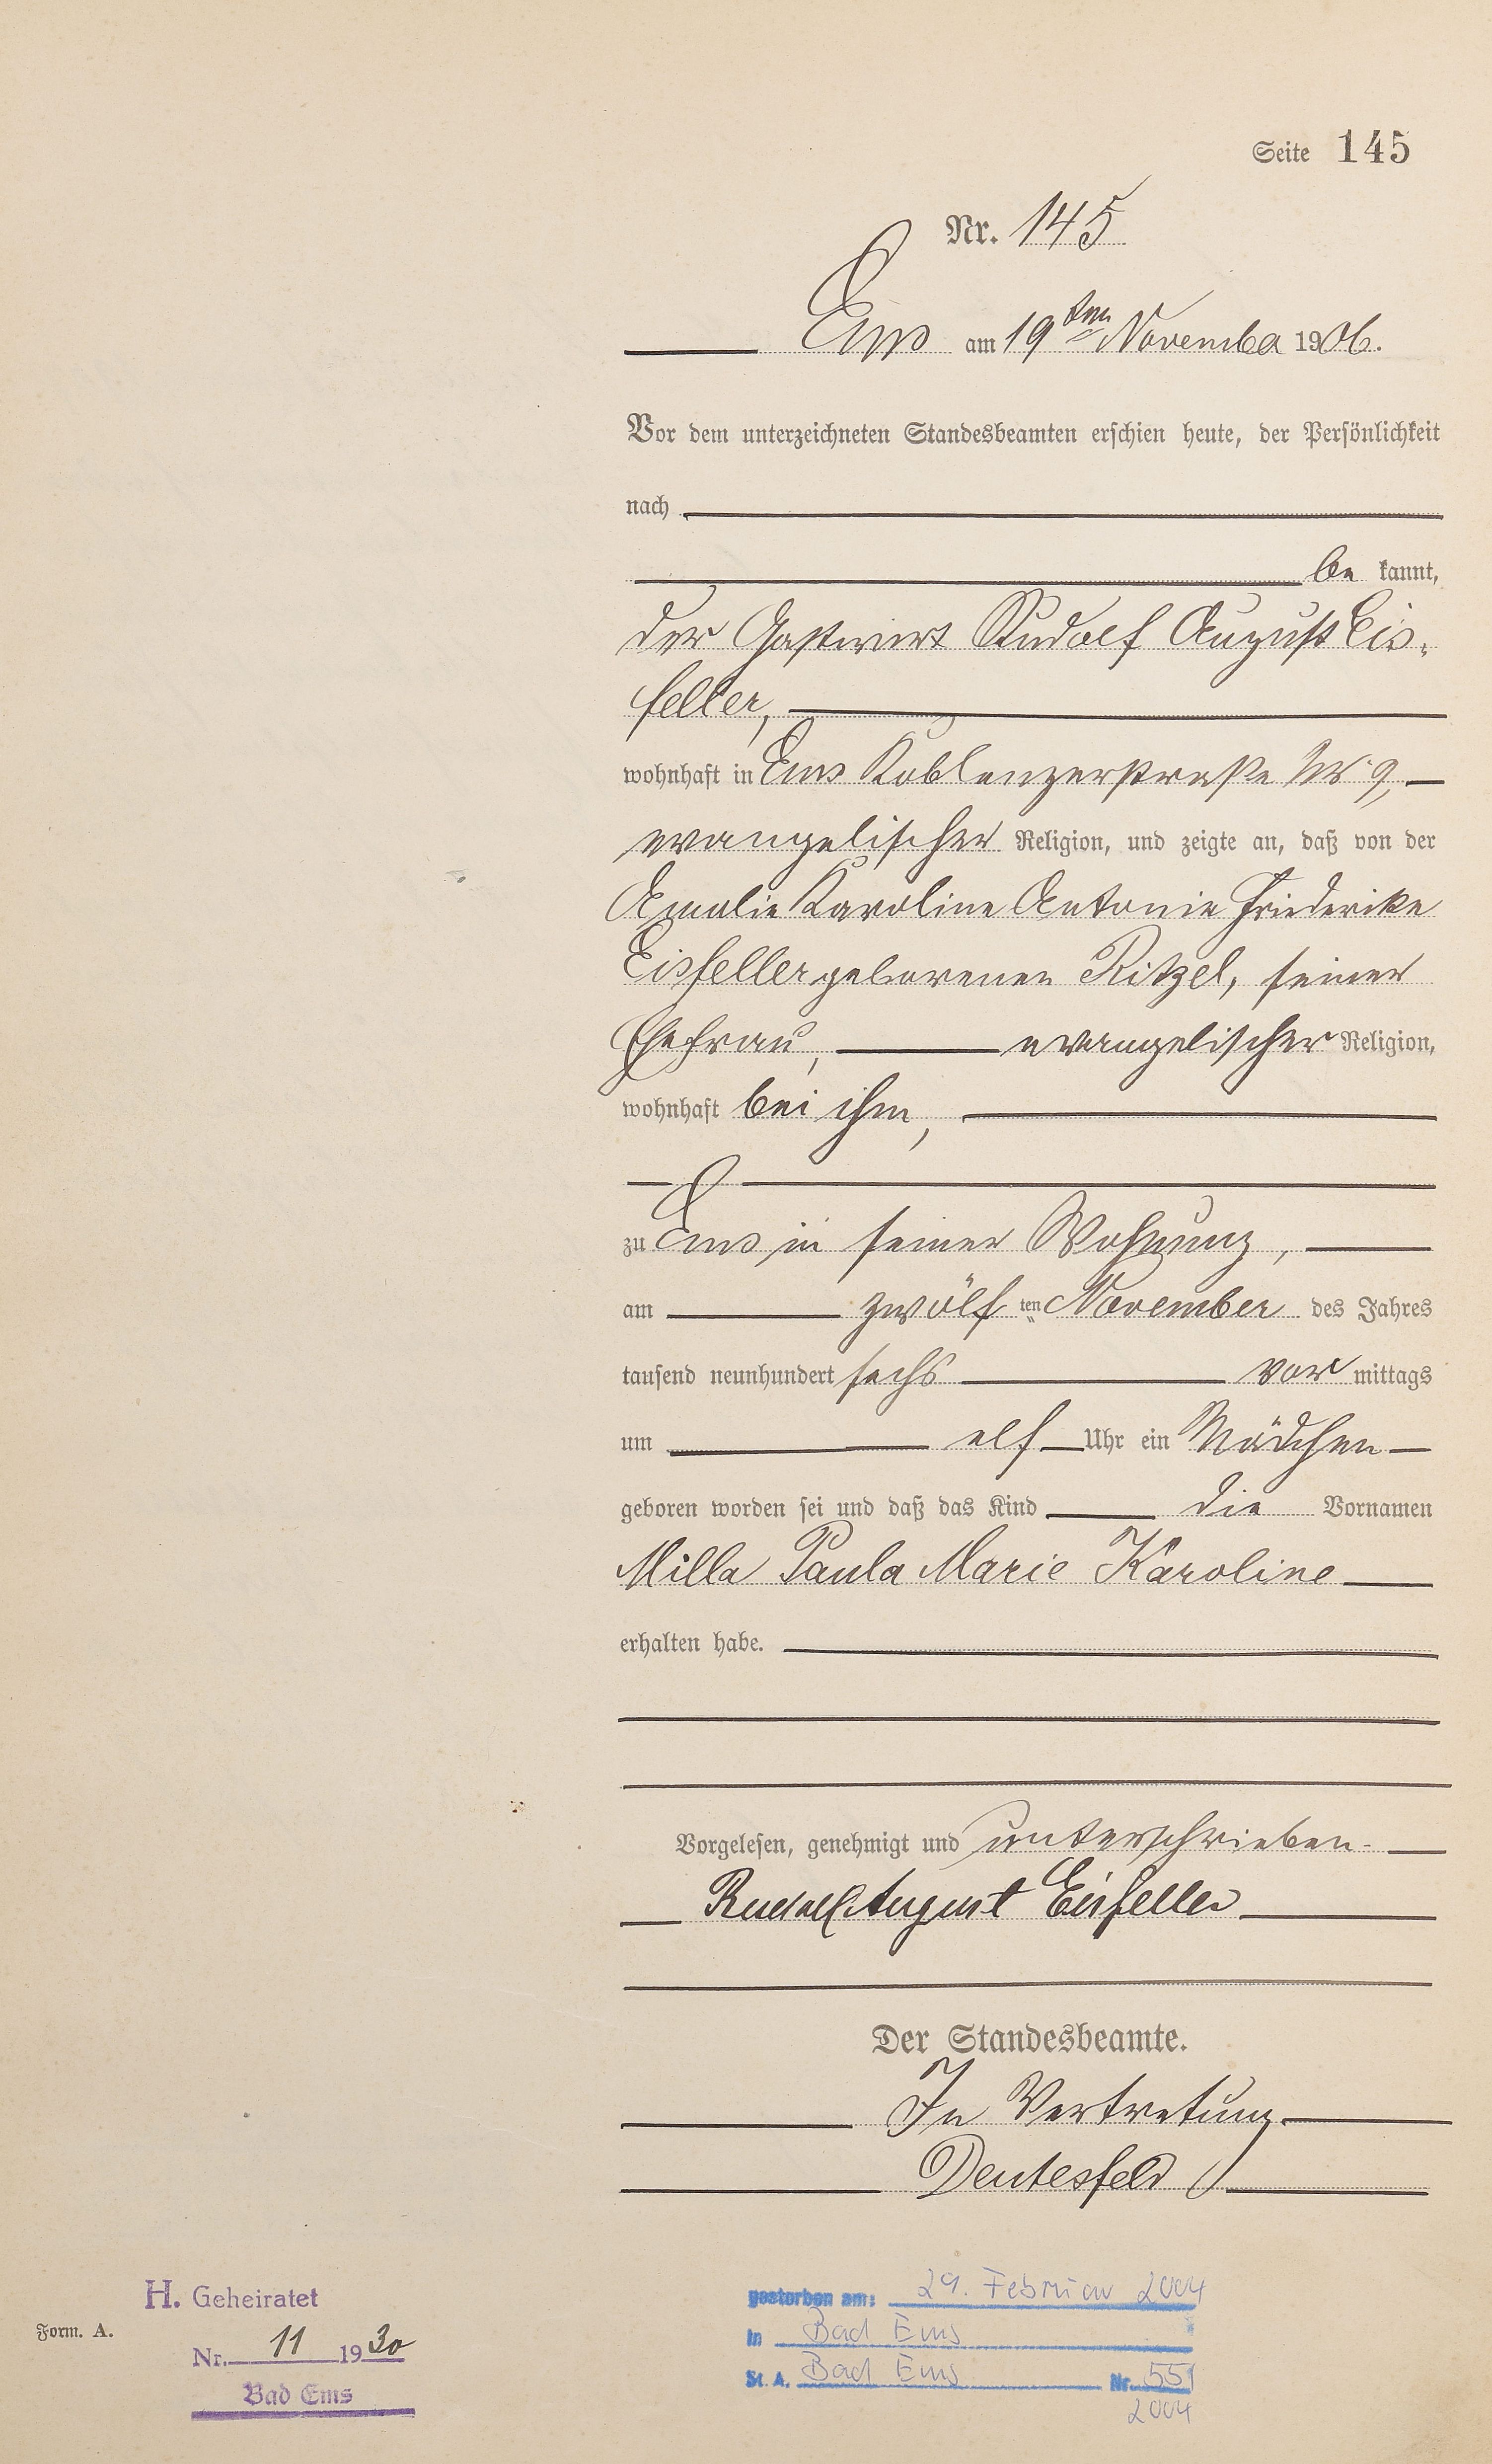 Seite 145
Nr. 145
Ems am 19ten November 1906.
Vor dem unterzeichneten Standesbeamten erschien heute, der Persönlichkeit
nach
be kannt,
der Gastwirt Rudolf August Eis-
feller,
wohnhaft in Ems Koblenzerstraße No 9,
evangelischer Religion, und zeigte an, daß von der
Amalie Karoline Antonie Friederike
Eisfeller geborenen Ritzel, seiner
Ehefrau, evangelischer Religion,
wohnhaft bei ihm,
zu Ems in seiner Wohnung,
am zwölf ten November des Jahres
tausend neunhundert sechs vor mittags
um elf Uhr ein Mädchen
geboren worden sei und daß das Kind die Vornamen
Milla Paula Marie Karoline
erhalten habe.
Vorgelesen, genehmigt und unterschrieben.
Rudolf August Eisfeller
Der Standesbeamte.
In Vertretung
Deutesfeld
H. Geheiratet
Nr. 11 1930
Bad Ems
Form. A.
gestorben am: 29. Februar 2004
in Bad Ems
St. A. Bad Ems Nr. 55/
2004